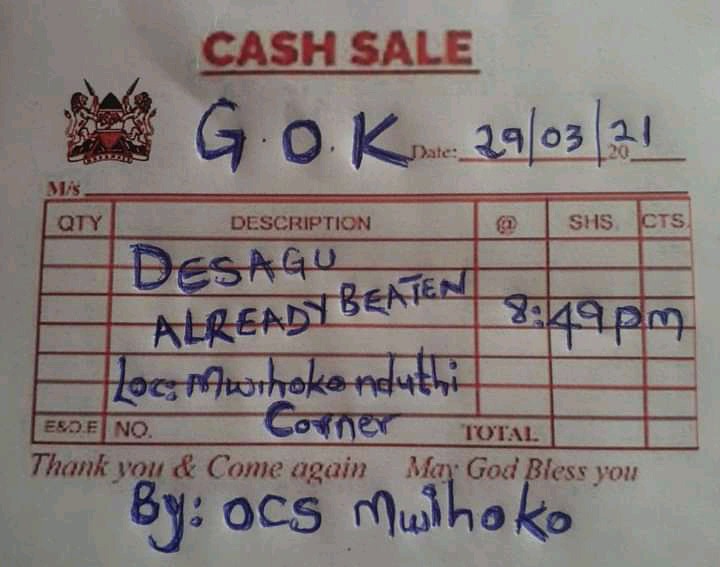 CASH SALE
G.O.K Date: 29/03/21 20
M/s
QTY DESCRIPTION @ SHS. CTS.
DESAGU
ALREADY BEATEN 8:49pm
Loc: Mwihoko nduthi
Corner
E&O.E NO. TOTAL
Thank you & Come again May God Bless you
By: OCS Mwihoko